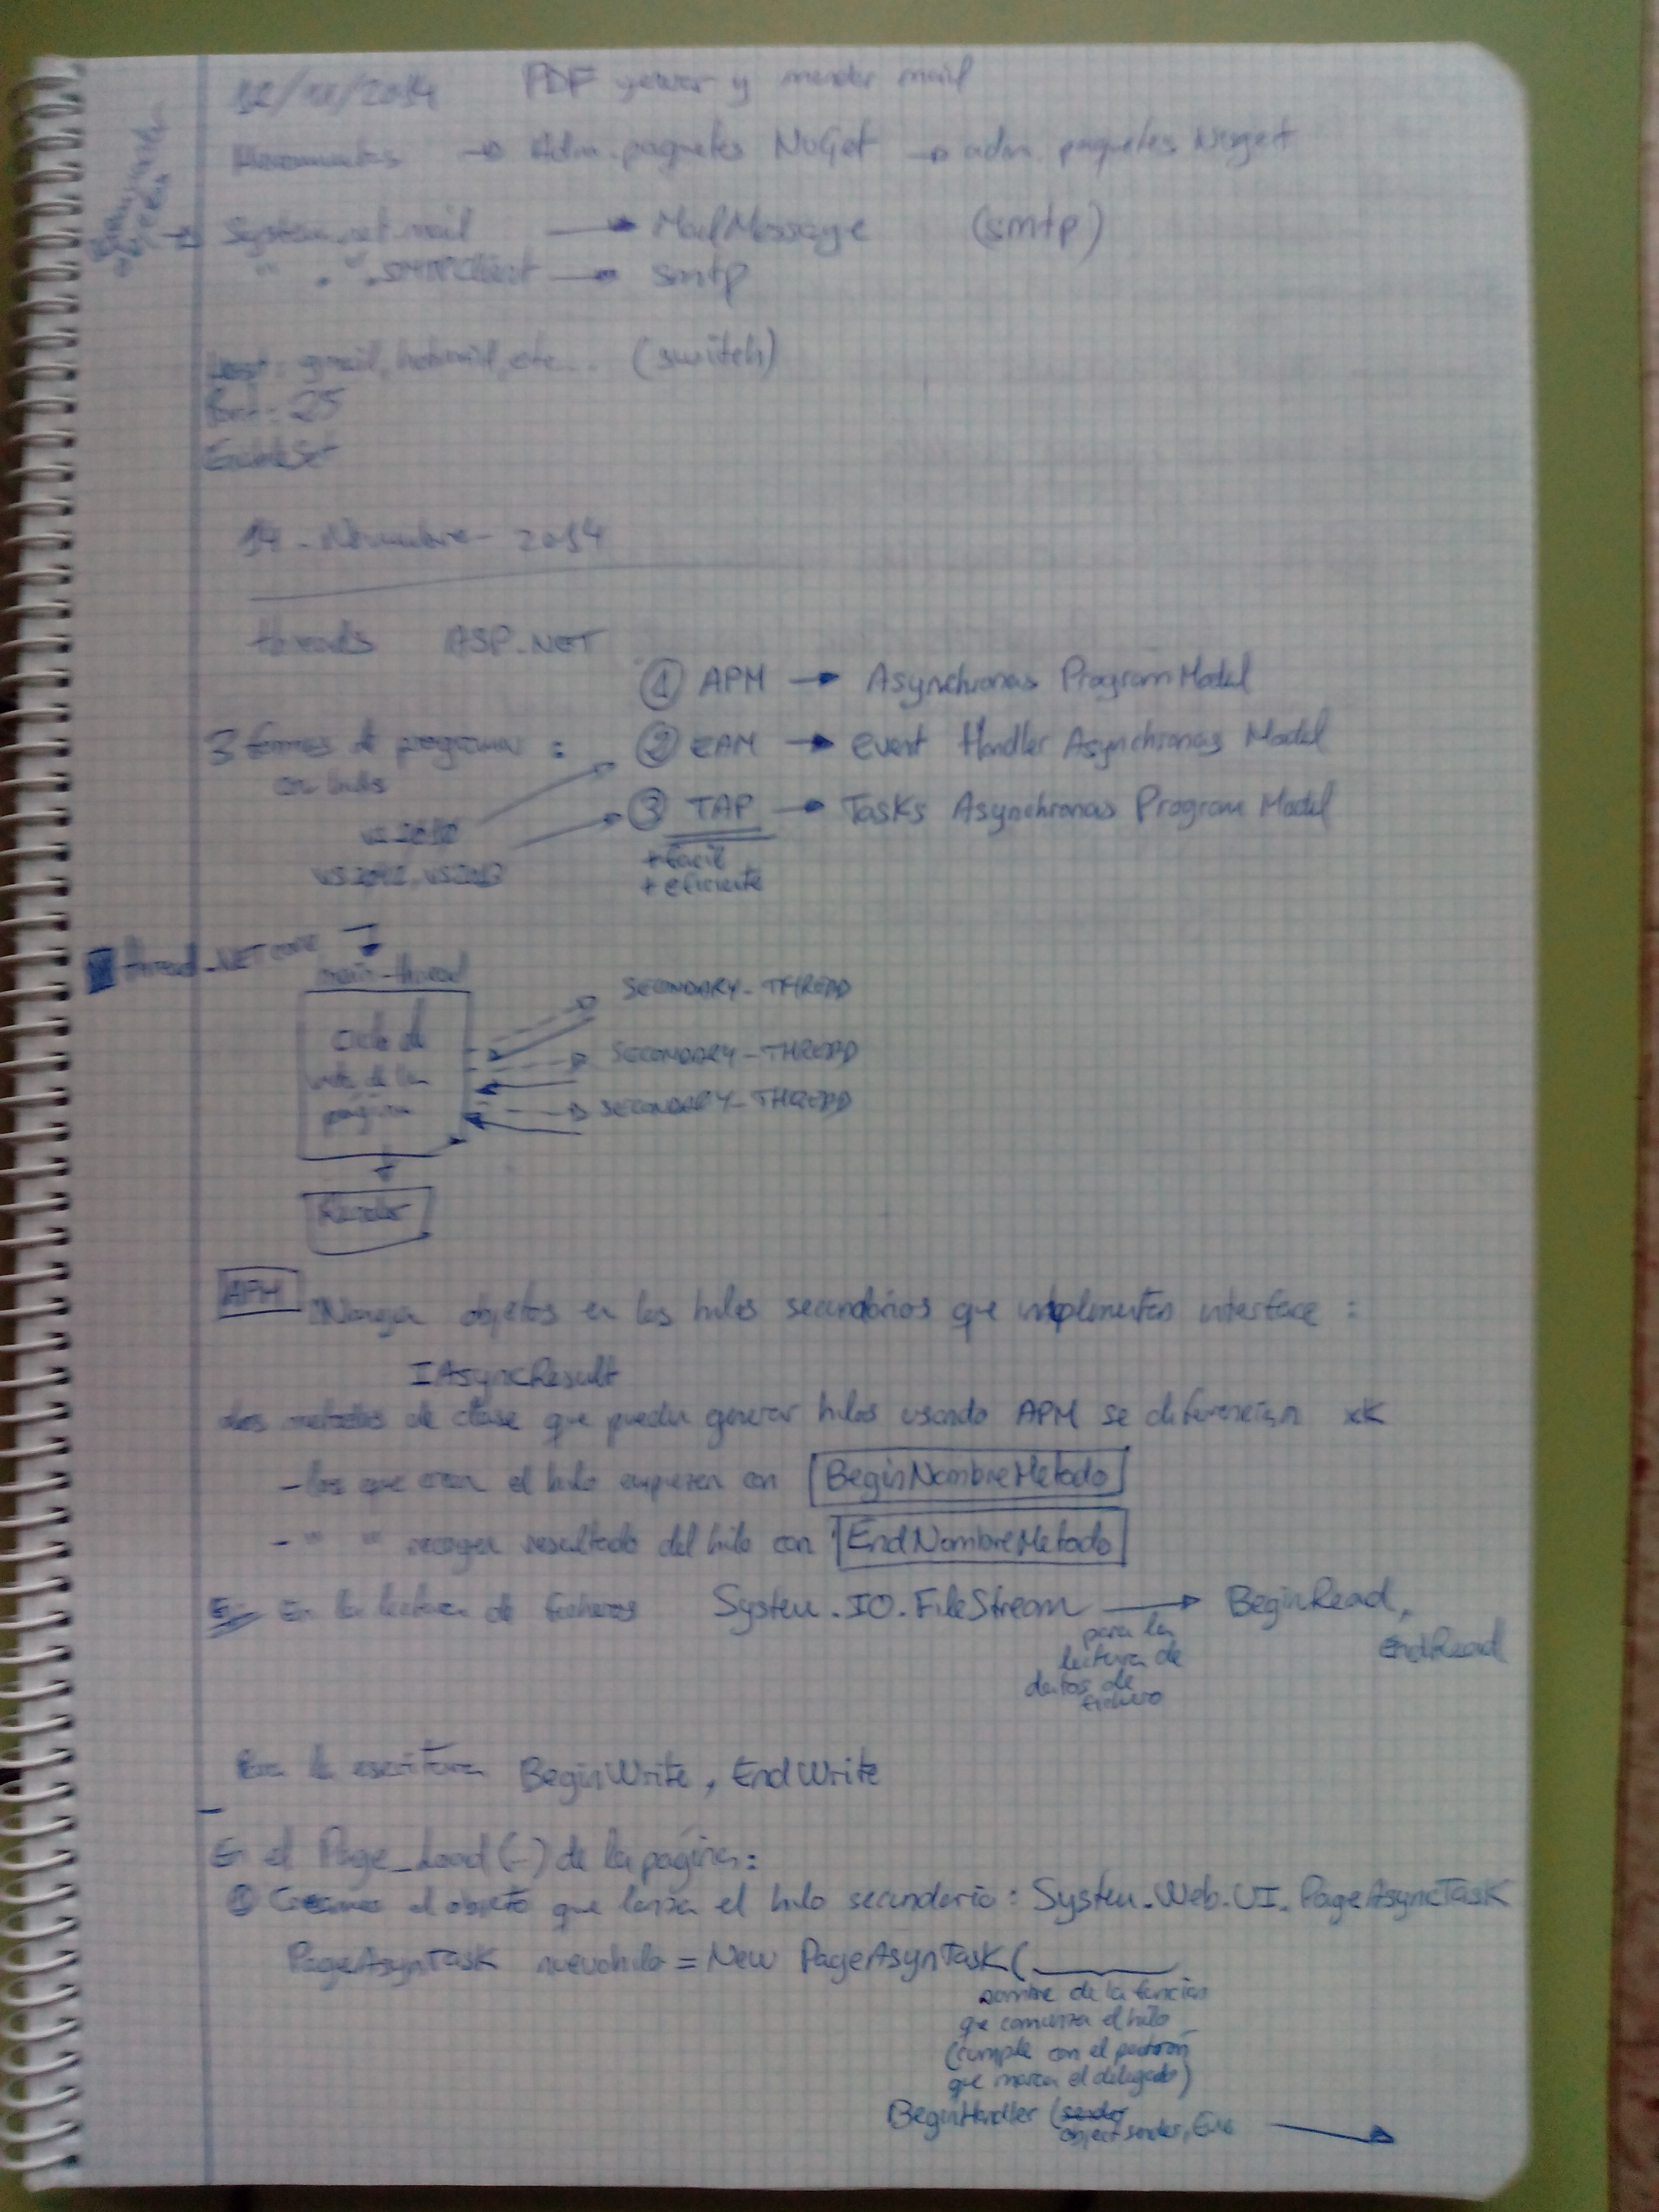 12/11/2014 PDF generar y mandar mail
Herramientas → Adm. paquetes NuGet → adm. paquetes Nuget
System.net.mail → MailMessage (smtp)
" . " .SMTPClient → smtp
host: gmail, hotmail, etc... (switch)
25
14 - Noviembre - 2014
threads ASP.NET
① APM → Asynchronas Program Model
3 formas de programar : ② EAM → Event Handler Asynchronas Model
con hilos
③ TAP → Tasks Asynchronas Program Model
VS 2010
+ facil
VS 2012, VS 2013
+ eficiente
thread .NET core
main-thread
SECONDARY-THREAD
Ciclo de
vida de la
página
SECONDARY-THREAD
SECONDARY-THREAD
Render
APM
Maneja objetos en los hilos secundarios que implementen interface :
IAsyncResult
Los metodos de clase que pueden generar hilos usando APM se diferencian xk
- los que crean el hilo empiezan con BeginNombreMetodo
- " " recogen resultado del hilo con EndNombreMetodo
Ej: En la lectura de ficheros System.IO.FileStream → BeginRead,
EndRead
para la
lectura de
datos de
fichero
Para la escritura BeginWrite, EndWrite
En el Page_Load(-) de la página:
① Creamos el objeto que lanza el hilo secundario: System.Web.UI.PageAsyncTask
PageAsynTask nuevohilo = New PageAsynTask(
nombre de la funcion
que comienza el hilo
(cumple con el patrón
que marca el delegado)
BeginHandler (sender
object sender, Eve →